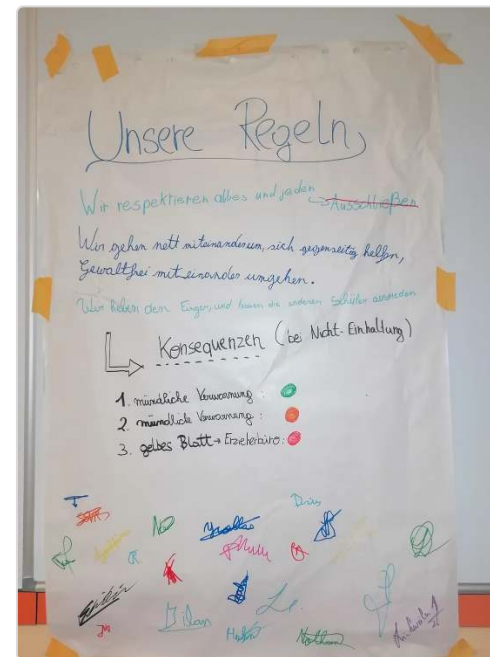 Unsere Regeln
Wir respektieren alles und jeden → Ausschließen
Wir gehen nett miteinander um, sich gegenseitig helfen,
Gewaltfrei miteinander umgehen.
Wir heben den Finger, und lassen die anderen Schüler ausreden
Konsequenzen (bei Nicht-Einhaltung)
1. mündliche Verwarnung:
2. mündliche Verwarnung:
3. gelbes Blatt → Erzieherbüro:
Dilan